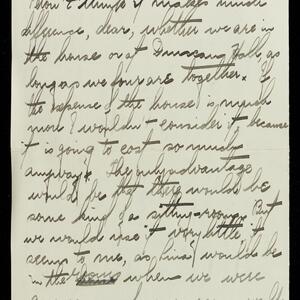 don't think it makes much
difference, dear, whether we are in
the house or at Duncan Hall, as
long as we four are together. If
the expense of the house is much
more I wouldn't consider it, because
it is going to cost so much
anyway. The only advantage
would be that there would be
some kind of a sitting-room. But
we would use it very little, it
seems to me, as, Nina would be
in the when we were